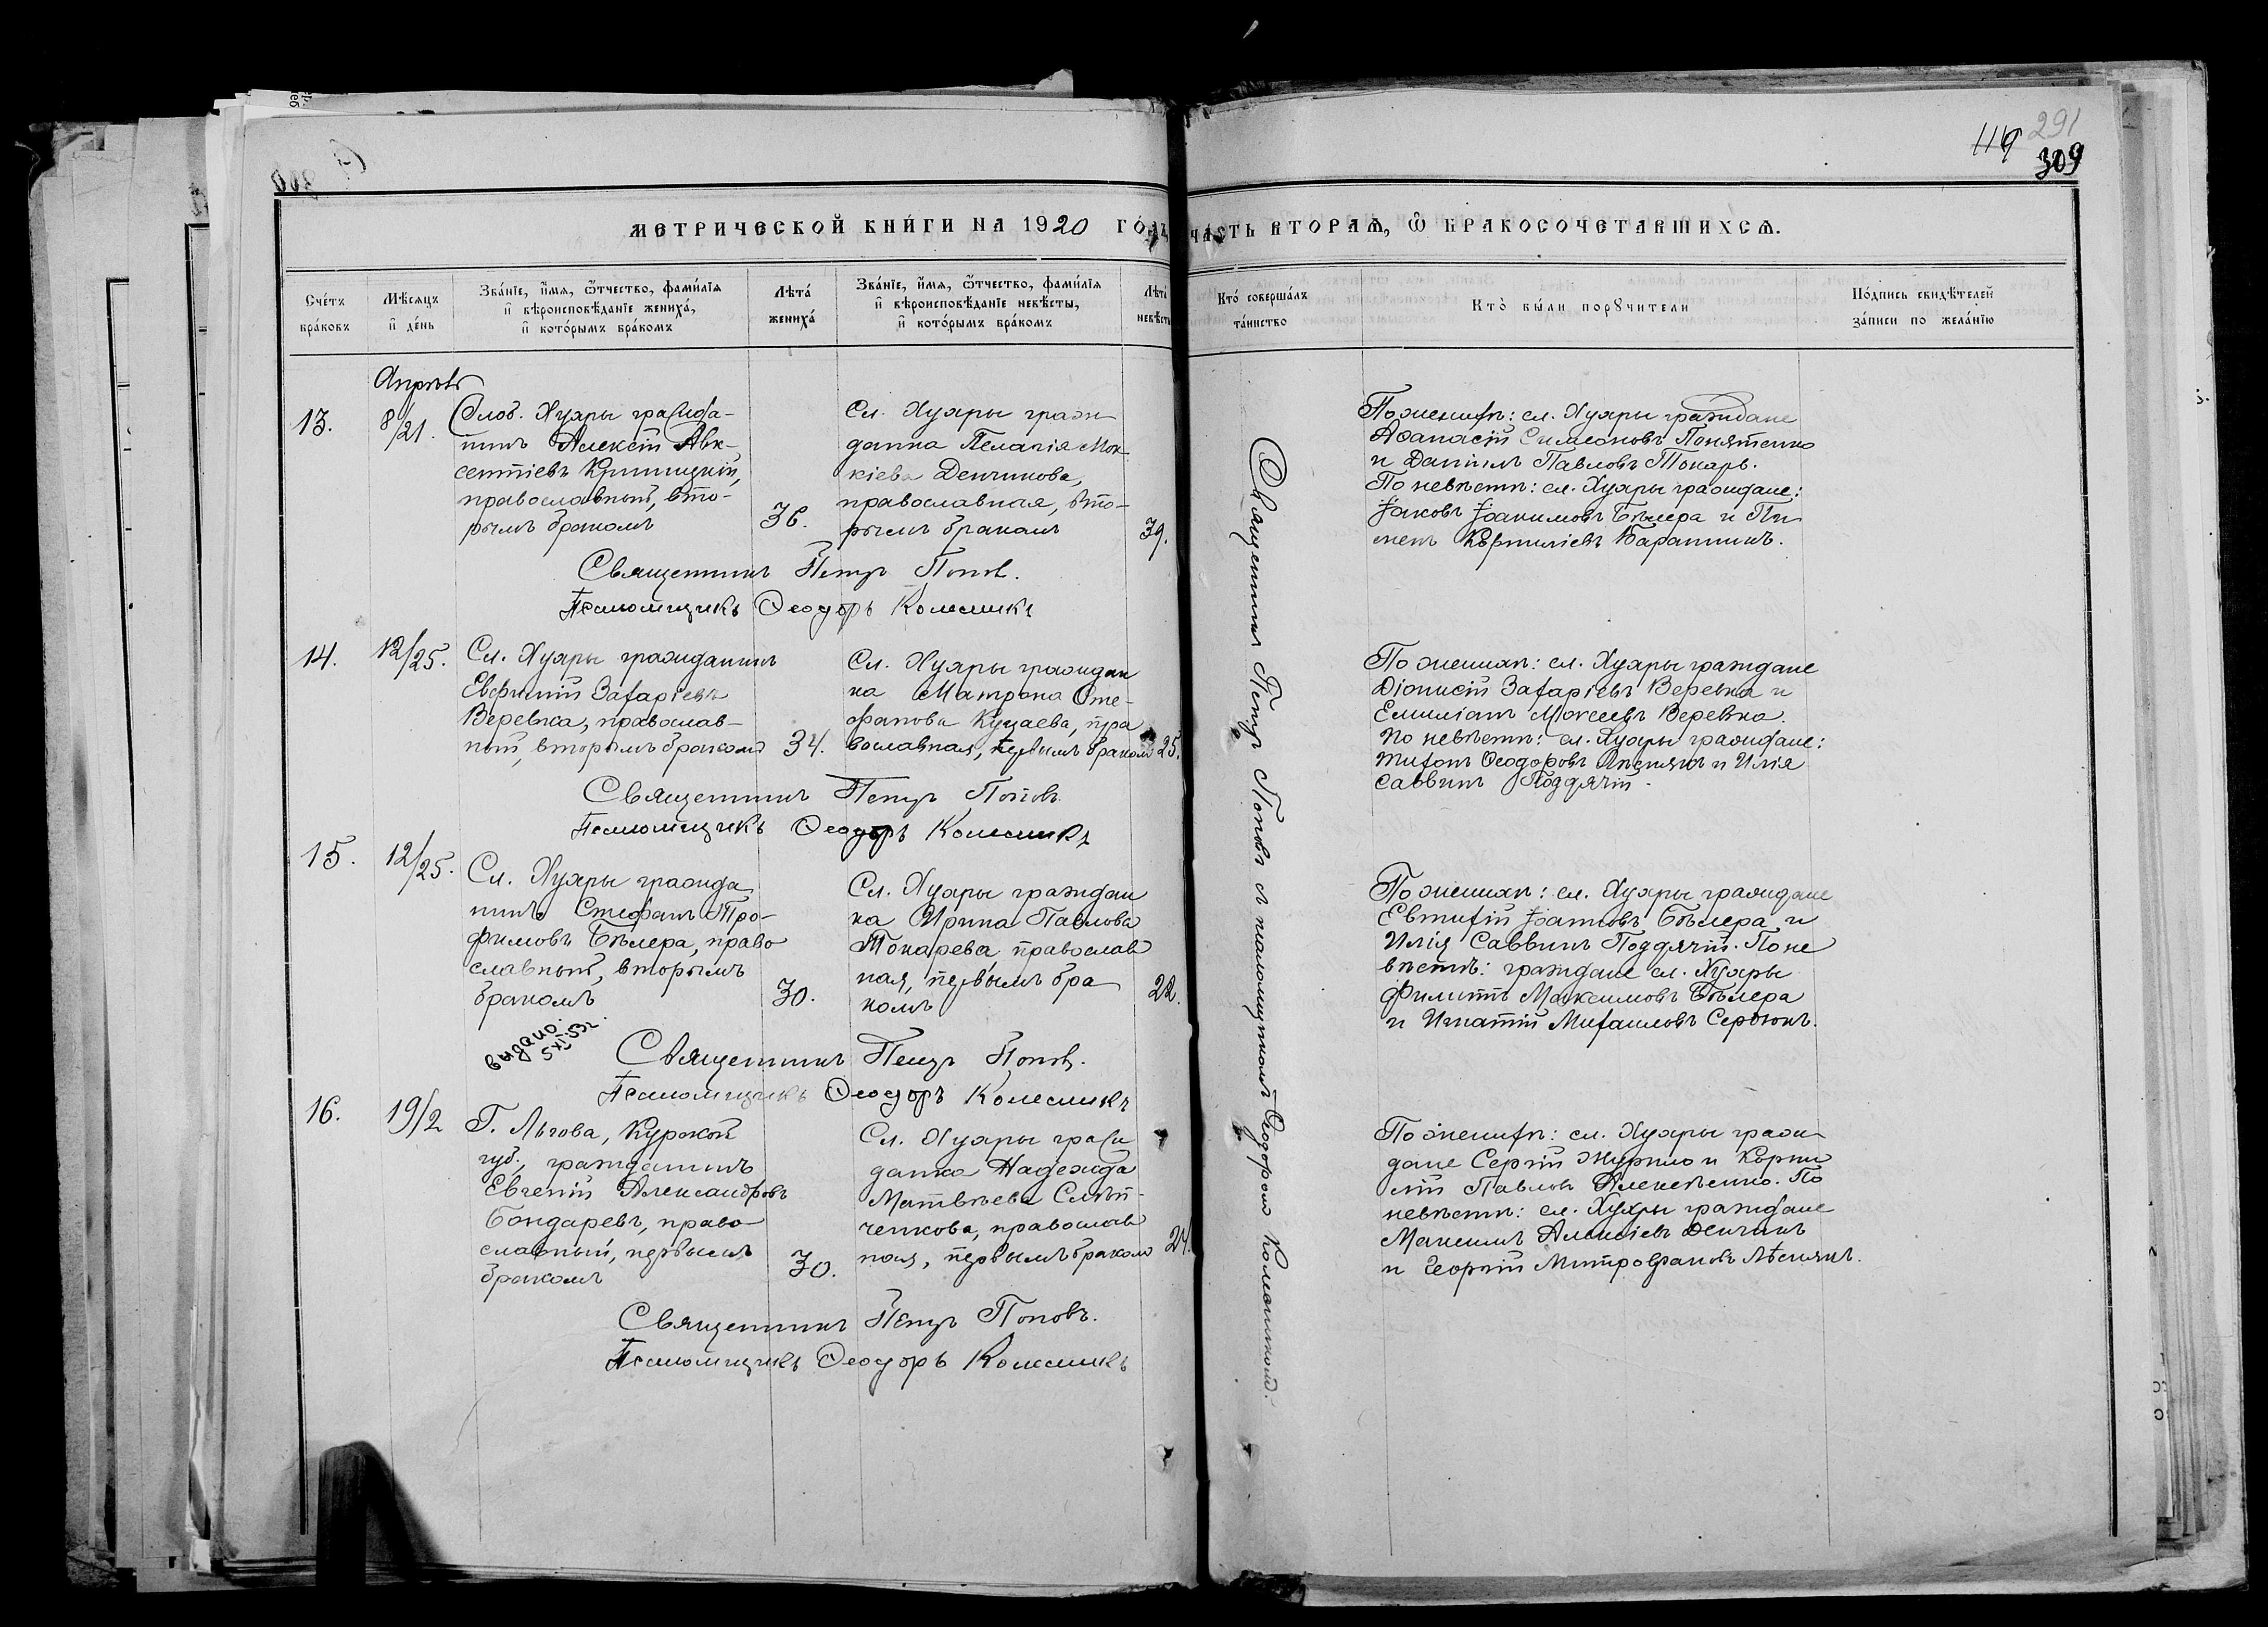 291
119
309
МЕТРИЧЕСКОЙ КНИ́ГИ НА 1920 ГО́ДЪ
ЧАСТЬ ВТОРАѦ, Ѡ БРАКОСОЧЕТАВШИХСѦ.
Счéтъ бра́ковъ
Мѣ́сяцъ и҆ де́нь
Зва́нїе, и҆́мя, ѻ҆́тчество, фами́лїя и҆ вѣроисповѣ́данїе жениха́, и҆ кото́рымъ бра́комъ
Лѣта́ жениха́
Зва́нїе, и҆́мя, ѻ҆́тчество, фами́лїя и҆ вѣроисповѣ́данїе невѣ́сты, и҆ кото́рымъ бра́комъ
Лѣта́ невѣ́сты
Кто́ соверша́лъ та́инство
Кто̀ бы́ли порꙋчители
По́дпись свидѣ́телей за́писи по жела́нїю
Апрѣль
13.
8/21.
Слоб. Хухры гражда-
нинъ Алексій Авк-
сентіевъ Криницкій,
православный, вто-
рымъ бракомъ
36.
Сл. Хухры граж
данка Пелагія Мок
кіева Денчикова,
православная, вто-
рымъ бракомъ
39.
По женихѣ: сл. Хухры граждане
Аѳанасій Симеоновъ Понятенко
и Даніилъ Павловъ Токарь.
По невѣстѣ: сл. Хухры граждане:
Іаковъ Іоакимовъ Бѣлера и Пи
менъ Корниліевъ Баранникъ.
Священникъ Петръ Поповъ.
Псаломщикъ Ѳеодоръ Колесникъ
14.
12/25.
Сл. Хухры гражданинъ
Евфимій Захаріевъ
Веревка, православ-
ный, вторымъ бракомъ
34.
Сл. Хухры граждан
ка Матрона Сте-
фанова Куцаева, пра
вославная, первымъ бракомъ
25.
По женихѣ: сл. Хухры граждане
Діонисій Захаріевъ Веревка и
Емиліанъ Моисеевъ Веревка.
По невѣстѣ: сл. Хухры граждане:
Тихонъ Ѳеодоровъ Лѣснякъ и Илія
Саввинъ Поддячій.
Священникъ Петръ Поповъ
Псаломщикъ Ѳеодоръ Колесникъ
15.
12/25.
Сл. Хухры гражда
нинъ Стефанъ Тро-
фимовъ Бѣлера, право
славный, вторымъ
бракомъ
30.
Сл. Хухры граждан
ка Ирина Павлова
Токарева, православ
ная, первымъ бра
комъ
22.
По женихѣ: сл. Хухры граждане
Евтихій Іоанновъ Бѣлера и
Илія Саввинъ Поддячій. По не
вѣстѣ: граждане сл. Хухры
Филиппъ Максимовъ Бѣлера
и Игнатій Михаиловъ Сердюкъ.
выдано.
5 XI 53 г.
Священникъ Петръ Поповъ.
Псаломщикъ Ѳеодоръ Колесникъ
16.
19/2
Г. Льгова, Курской
губ., гражданинъ
Евгеній Александровъ
Бондаревъ, право
славный, первымъ
бракомъ
30.
Сл. Хухры граж
данка Надежда
Матвѣева Слѣп-
ченкова, православ
ная, первымъ бракомъ
24.
По женихѣ: сл. Хухры граж
дане Сергій Журило и Корни
лій Павловъ Алексѣенко. По
невѣстѣ: сл. Хухры граждане
Максимъ Алексіевъ Денчикъ
и Георгій Митрофановъ Лѣснякъ.
Священникъ Петръ Поповъ.
Псаломщикъ Ѳеодоръ Колесникъ
Священникъ Петръ Поповъ съ псаломщикомъ Ѳеодоромъ Колесникомъ.